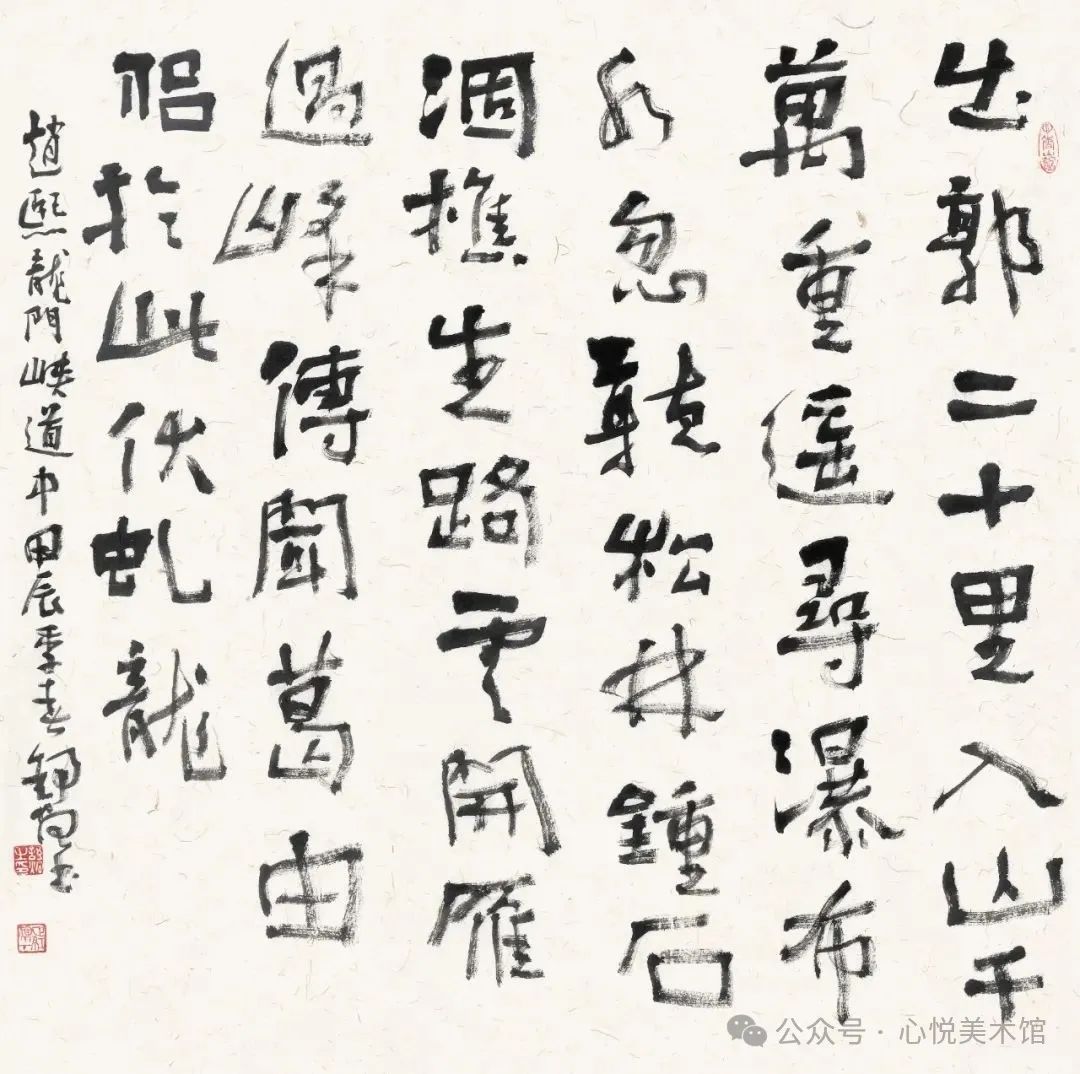 出郭二十里入山千
萬重遥尋瀑布
水忽聽松林鍾石
涸樵生路雲開雁
過峰傳聞葛由
侶於此伏虬龍
趙熙龍門峽道中甲辰季春書
公众号 · 心悦美术馆